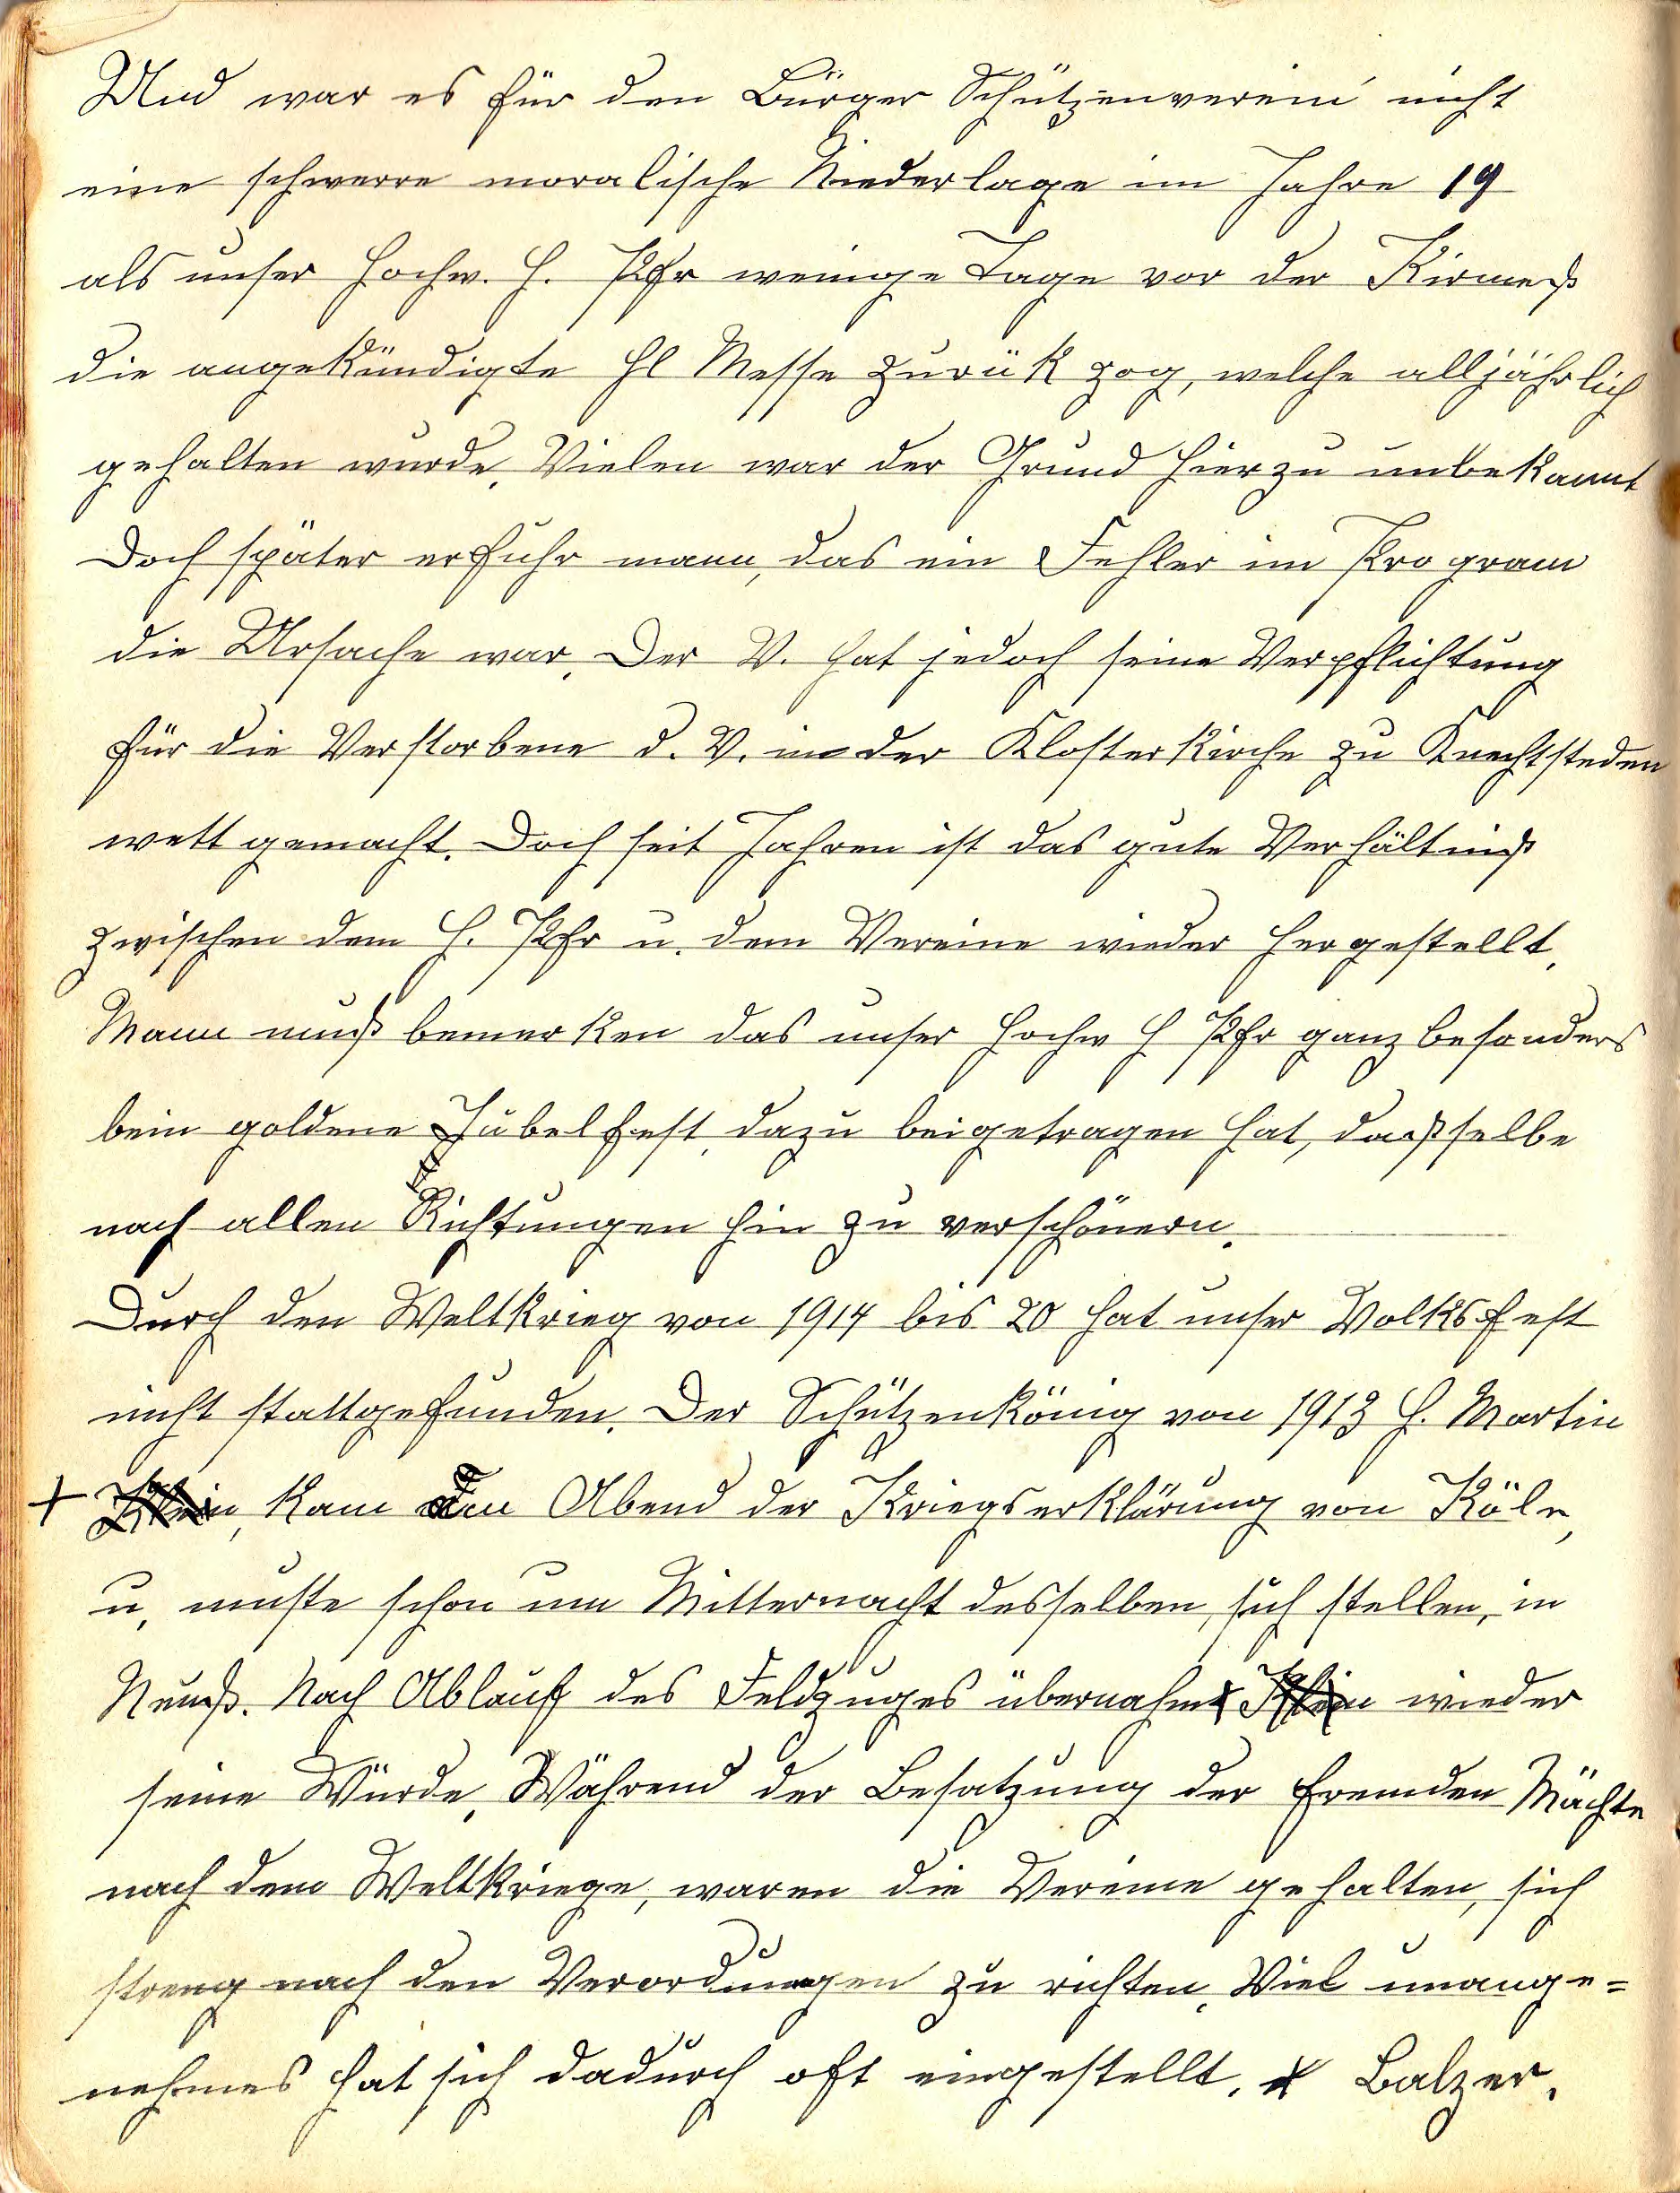 Und war es für den Bürger Schützenverein nicht
eine schwerre moralische Niederlage im Jahre 19
als unser Hochw. H. Pfr wenige Tage vor der Kirmeß
die angekündigte Hl Messe zurük zog, welche alljährlich
gehalten wurde. Vielen war der Grund hierzu unbekannt
Doch später erfuhr mann, das ein Fehler im Program
die Ursache war. Der V. hat jedoch seine Verpflichtung
für die Verstorbene d. V. in der Klosterkirche zu Knechtsteden
wett gemacht. Doch seit Jahren ist das gute Verhältniß
zwischen dem H. Pfr u. dem Vereine wieder hergestellt.
Mann muß bemerken das unser Hochw H Pfr ganz besonders
bein goldene Jubelfest, dazu beigetragen hat, daßselbe
nach allen Richtungen hin zu verschönern.
Durch den Weltkrieg von 1914 bis 20 hat unser Volksfest
nicht stattgefunden. Der Schützenkönig von 1913 H. Martin
+ kam den Abend der Kriegserklärung von Köln,
u. muste schon um Mitternacht desselben, sich stellen, in
Neuß. Nach Ablauf des Feldzuges übernahm wieder
seine Würde. Während der Besatzung der fremden Mächte
nach dem Weltkriege, waren die Vereine gehalten, sich
streng nach den Verordnungen zu richten. Viel unange=
nehmes hat sich dadurch oft eingestellt. + Balzer.